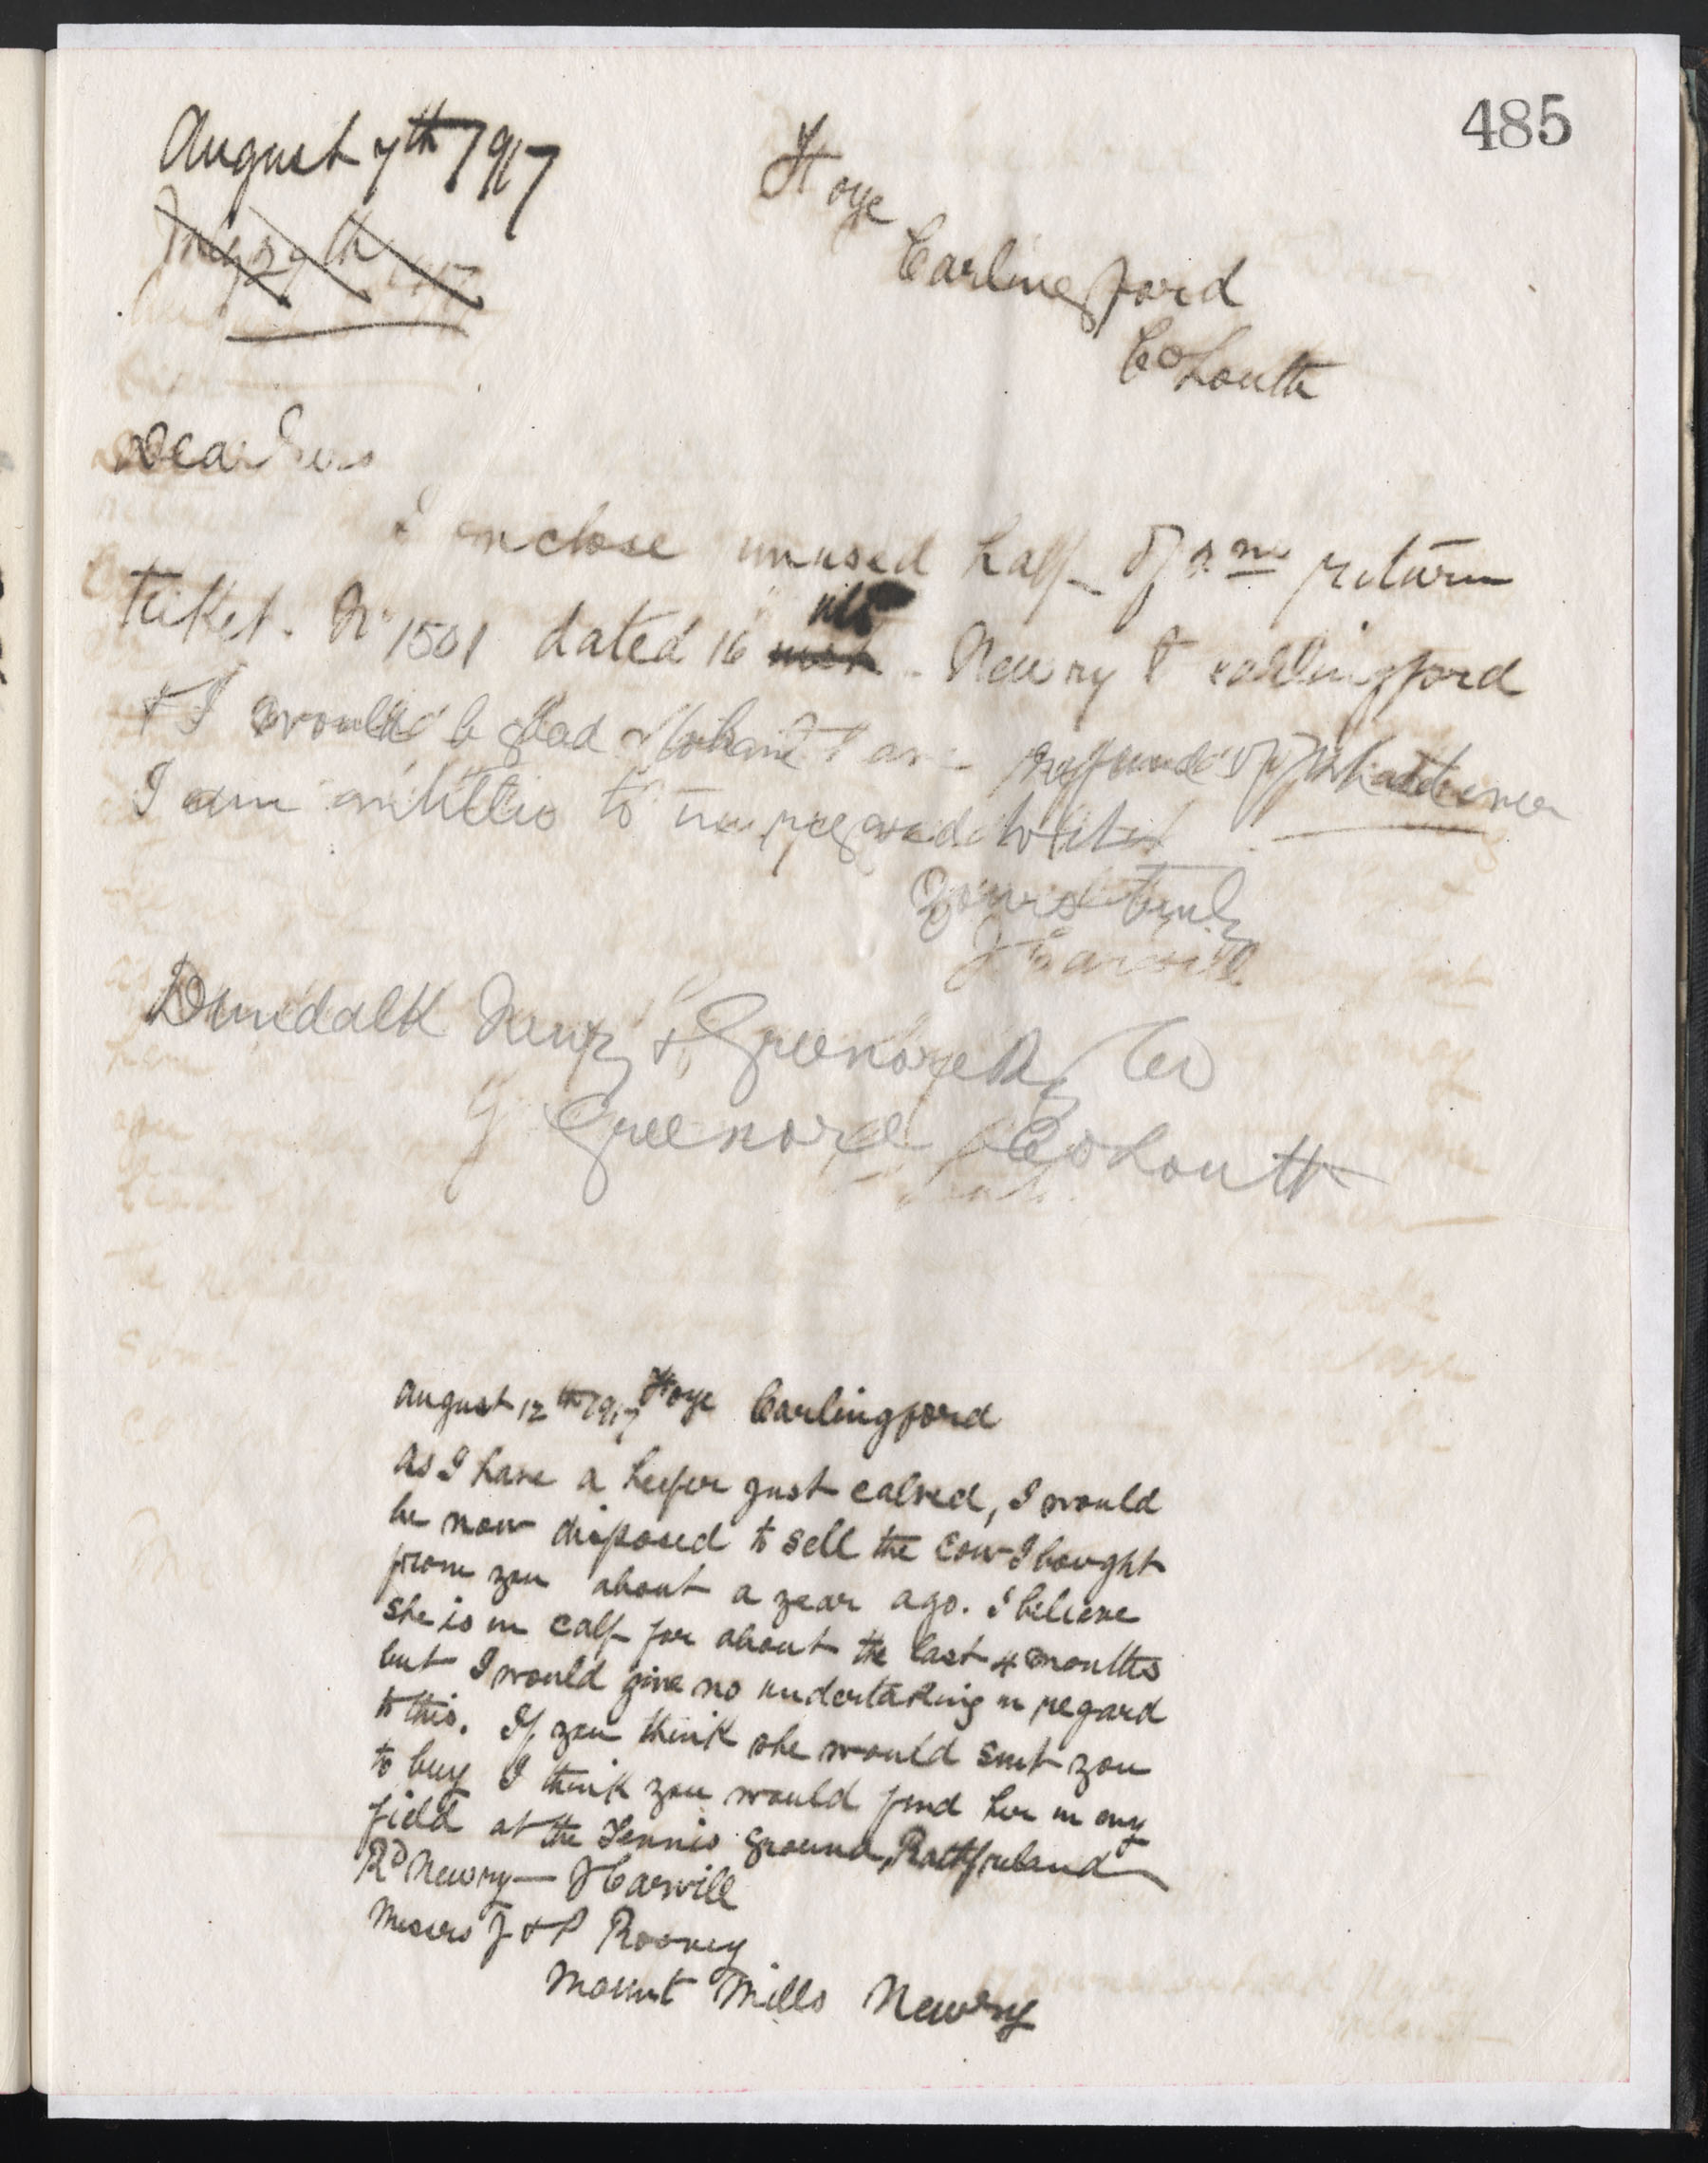 485
August 7th 1917
July 29th 1917
Hoye
Carlingford
Co Louth
Dear Sirs
I enclose unused half of return
ticket. No 1501 dated 16 inst ult - Newry & Carlingford
& I would be glad to have a refund of whatever
I am entitled to in regard to it
Yours truly
J Carvill
Dundalk Newry & Greenore Ry Co
Greenore Co Louth
August 12th 1917 Hoye Carlingford
As I have a heifer just calved, I would
be now disposed to sell the cow I bought
from you about a year ago. I believe
she is in calf for about the last 4 months
but I would give no undertaking in regard
to this. If you think she would suit you
to buy I think you would find her in my
field at the Tennis ground, Rathfriland
Rd Newry — J Carvill
Messrs J & P Rooney
Mount Mills Newry